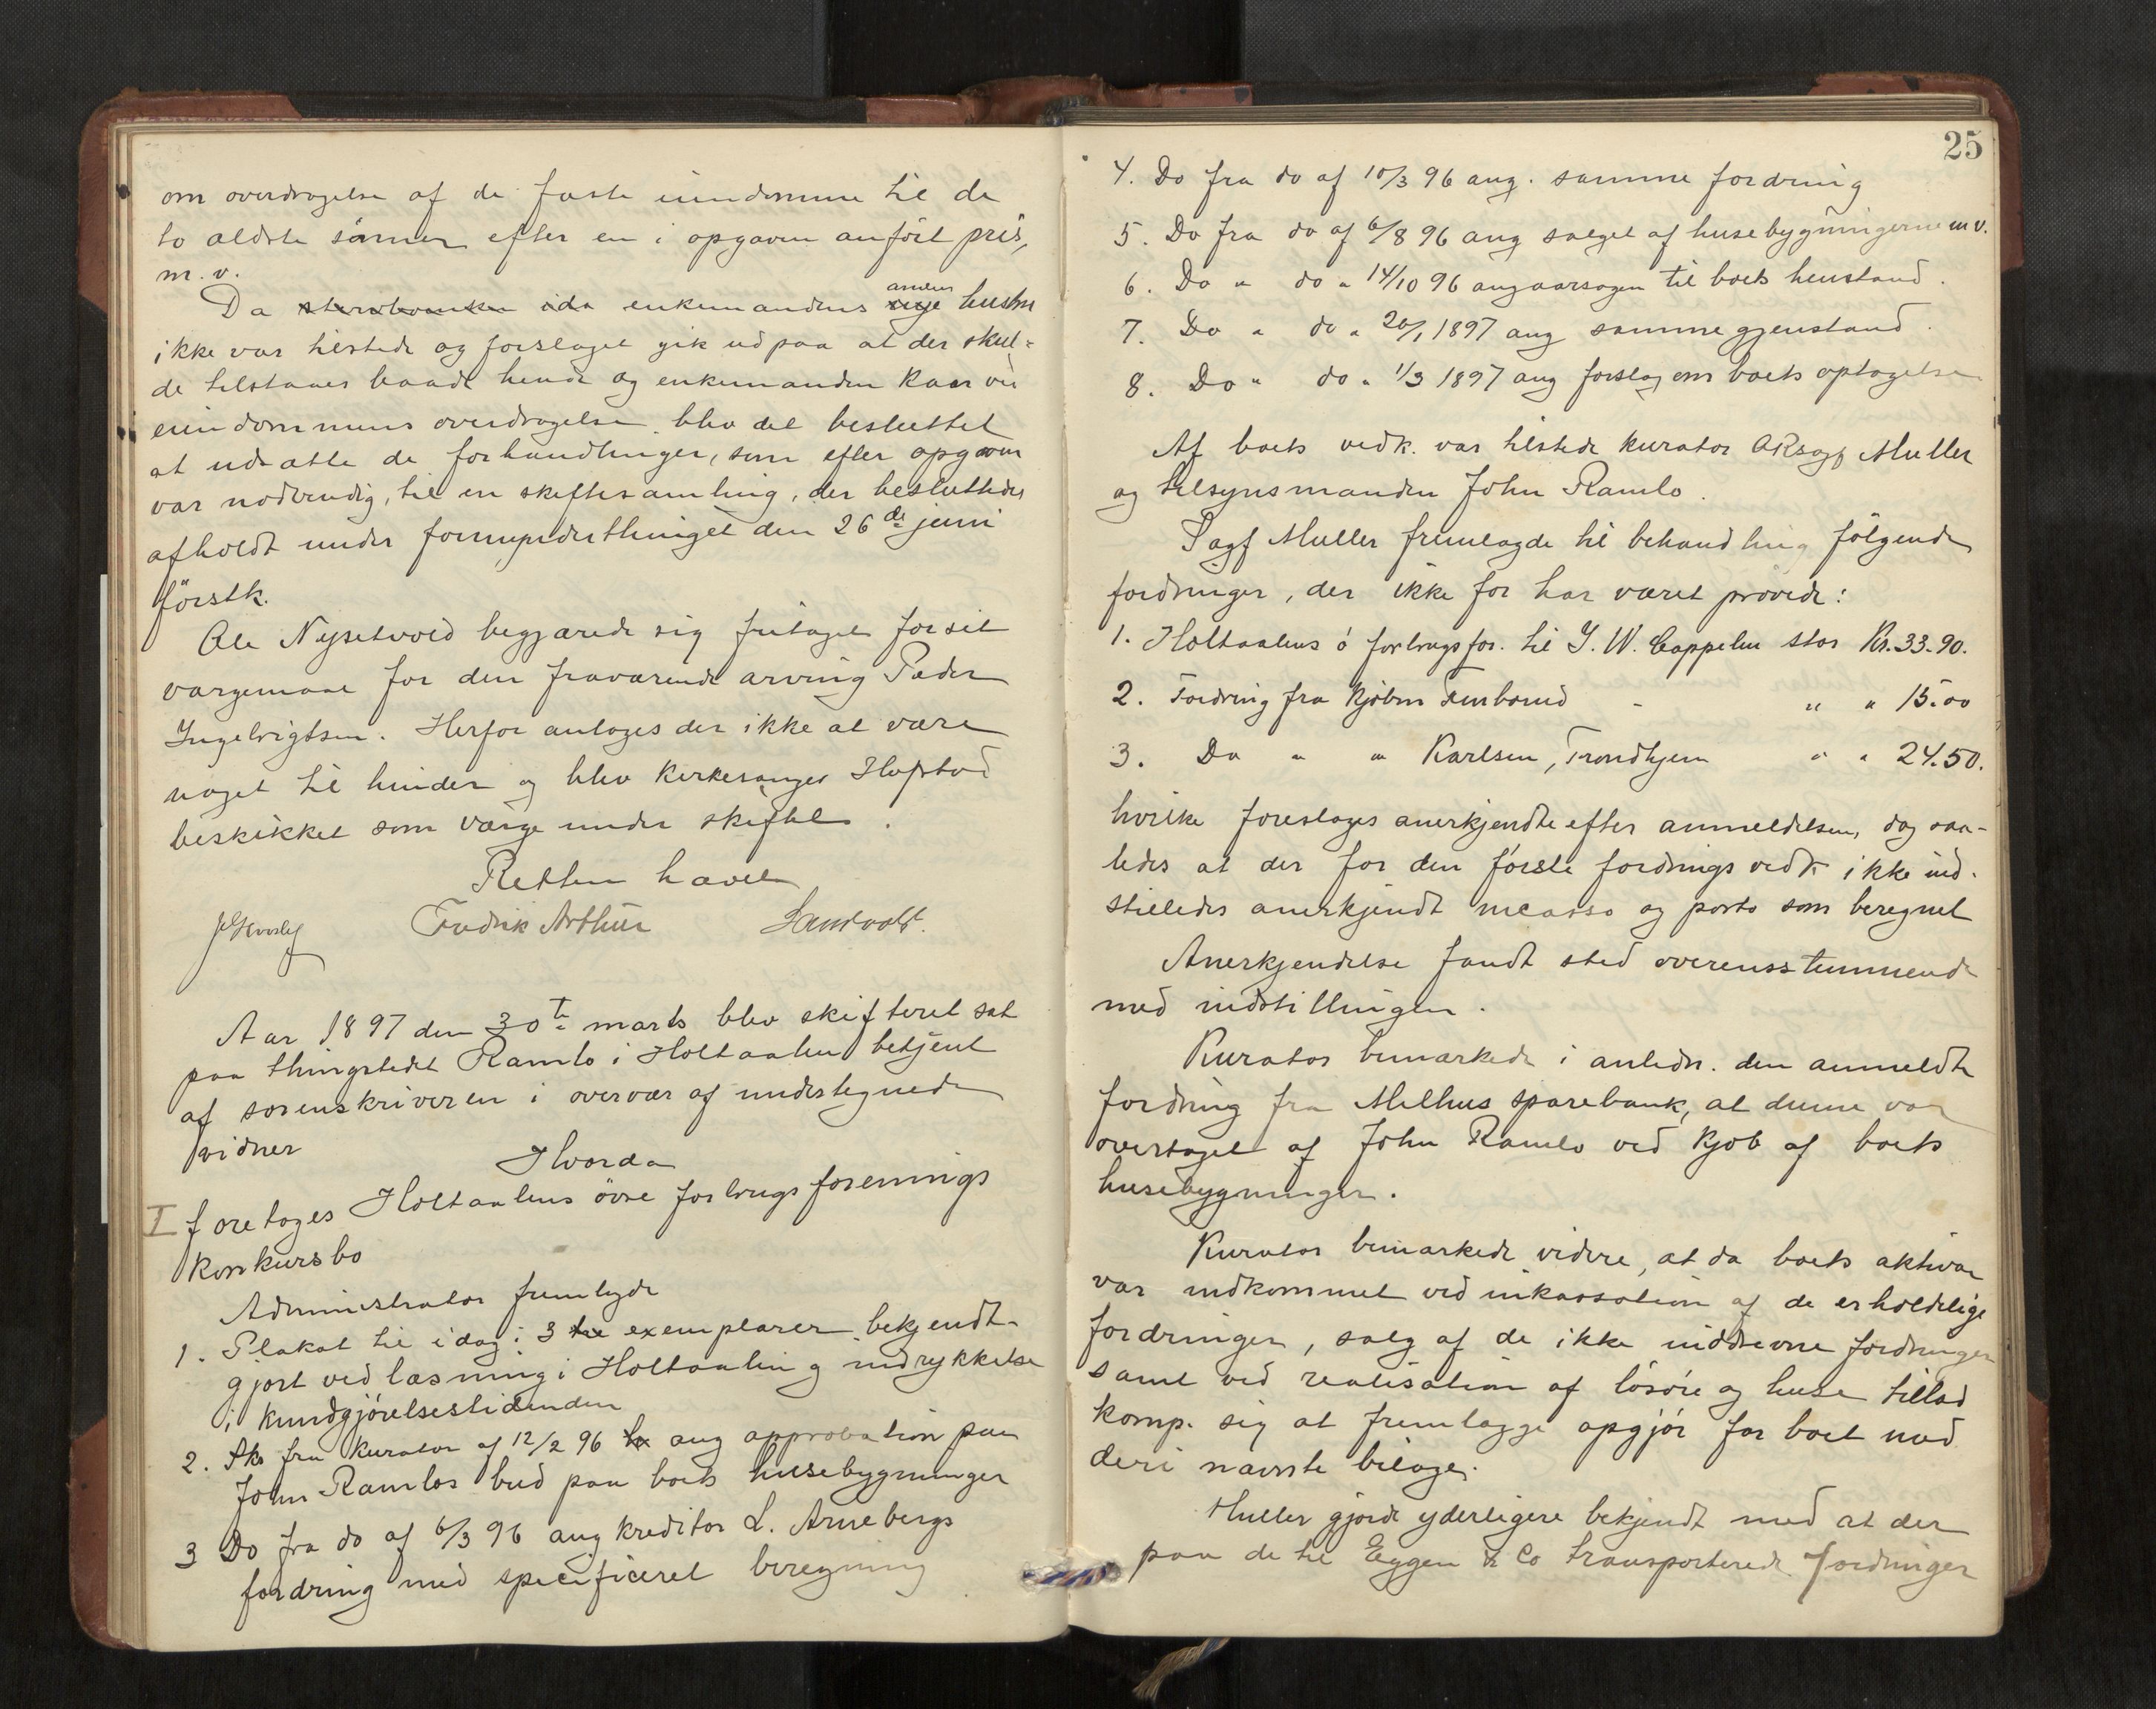 om overdragelse af de faste eiendomme til de
to ældste sønner efter en i opgaven anført pris,
m. v.
Da ida enkemandens anden hustru
ikke var tilstede og forslaget gik ud paa at der skul=
de tilstaaes baade hende og enkemanden kaar ved
eiendommens overdragelse, blev det besluttet
at udsætte de forhandlinger, som efter opgaven
var nødvendig, til en skiftesamling, der besluttedes
afholdt under formynderthinget den 26de juni
førstk.
Ole Nysetvold begjærede sig fritaget for sit
værgemaal for den fraværende arving Peder
Ingebrigtsen. Herfor antoges der ikke at være
noget til hinder og blev kirkesanger Hofstad
beskikket som værge under skiftet.
Retten hævet
Fredrik Arthur Sandvolt.
Aar 1897 den 30te marts blev skifteret sat
paa thingstedet Ramlo i Holtaalen betjent
af sorenskriveren i overvær af undertegnede
vidner
Hvorda
I foretoges Holtaalens øvre forbrugsforenings
konkursbo
Administrator fremlagde
1. Plakat til idag i 3 tre exemplarer bekjendt-
gjort ved læsning i Holtaalen og indrykkelse
i kundgjørelsestidenden
2. Sk. fra kurator af 12/2 96 ang approbation paa
John Ramlos bud paa boets husebygninger
3 Do fra do af 6/3 96 ang kreditor L. Arnebergs
fordring med specificeret beregning
25
4. Do fra do af 10/3 96 ang. samme fordring
5. Do fra do af 6/8 96 ang salget af husebygningerne m v.
6. Do " do " 14/10 96 ang aarsagen til boets henstand.
7. Do " do " 20/1 1897 ang samme gjenstand.
8. Do " do " 1/3 1897 ang forslag om boets optagelse
Af boets vedk. var tilstede kurator Muller
og tilsynsmanden John Ramlo.
Sagf Muller fremlagde til behandling følgende
fordringer, der ikke før har været prøvede:
1. Holtaalens ø forbrugsfor. til J. W. Cappelen stor Kr. 33.90.
2. Fordring fra kjøbm - " " 15.00
3. Do " " Karlsen, Trondhjem " " 24.50.
hvilke foreslages anerkjendte efter anmeldelsen, dog saa-
ledes at der for den første fordrings vedk ikke ind-
stilledes anerkjendt incasso og porto som beregnet
Anerkjendelse fandt sted overensstemmende
med indstillingen.
Kurator bemærkede i anledn. den anmeldte
fordring fra Melhus sparebank, at denne var
overtaget af John Ramlo ved kjøb af boets
husebygninger.
Kurator bemærkede videre, at da boets aktiva
var indkommet ved inkassation af de erholdelige
fordringer, salg af de ikke inddrevne fordringer
samt ved realisation af løsøre og huse tillod
komp. sig at fremlægge opgjør for boet med
deri nævnte bilage.
Muller gjorde yderligere bekjendt med at der
paa de til Eggen & Co transporterede fordringer